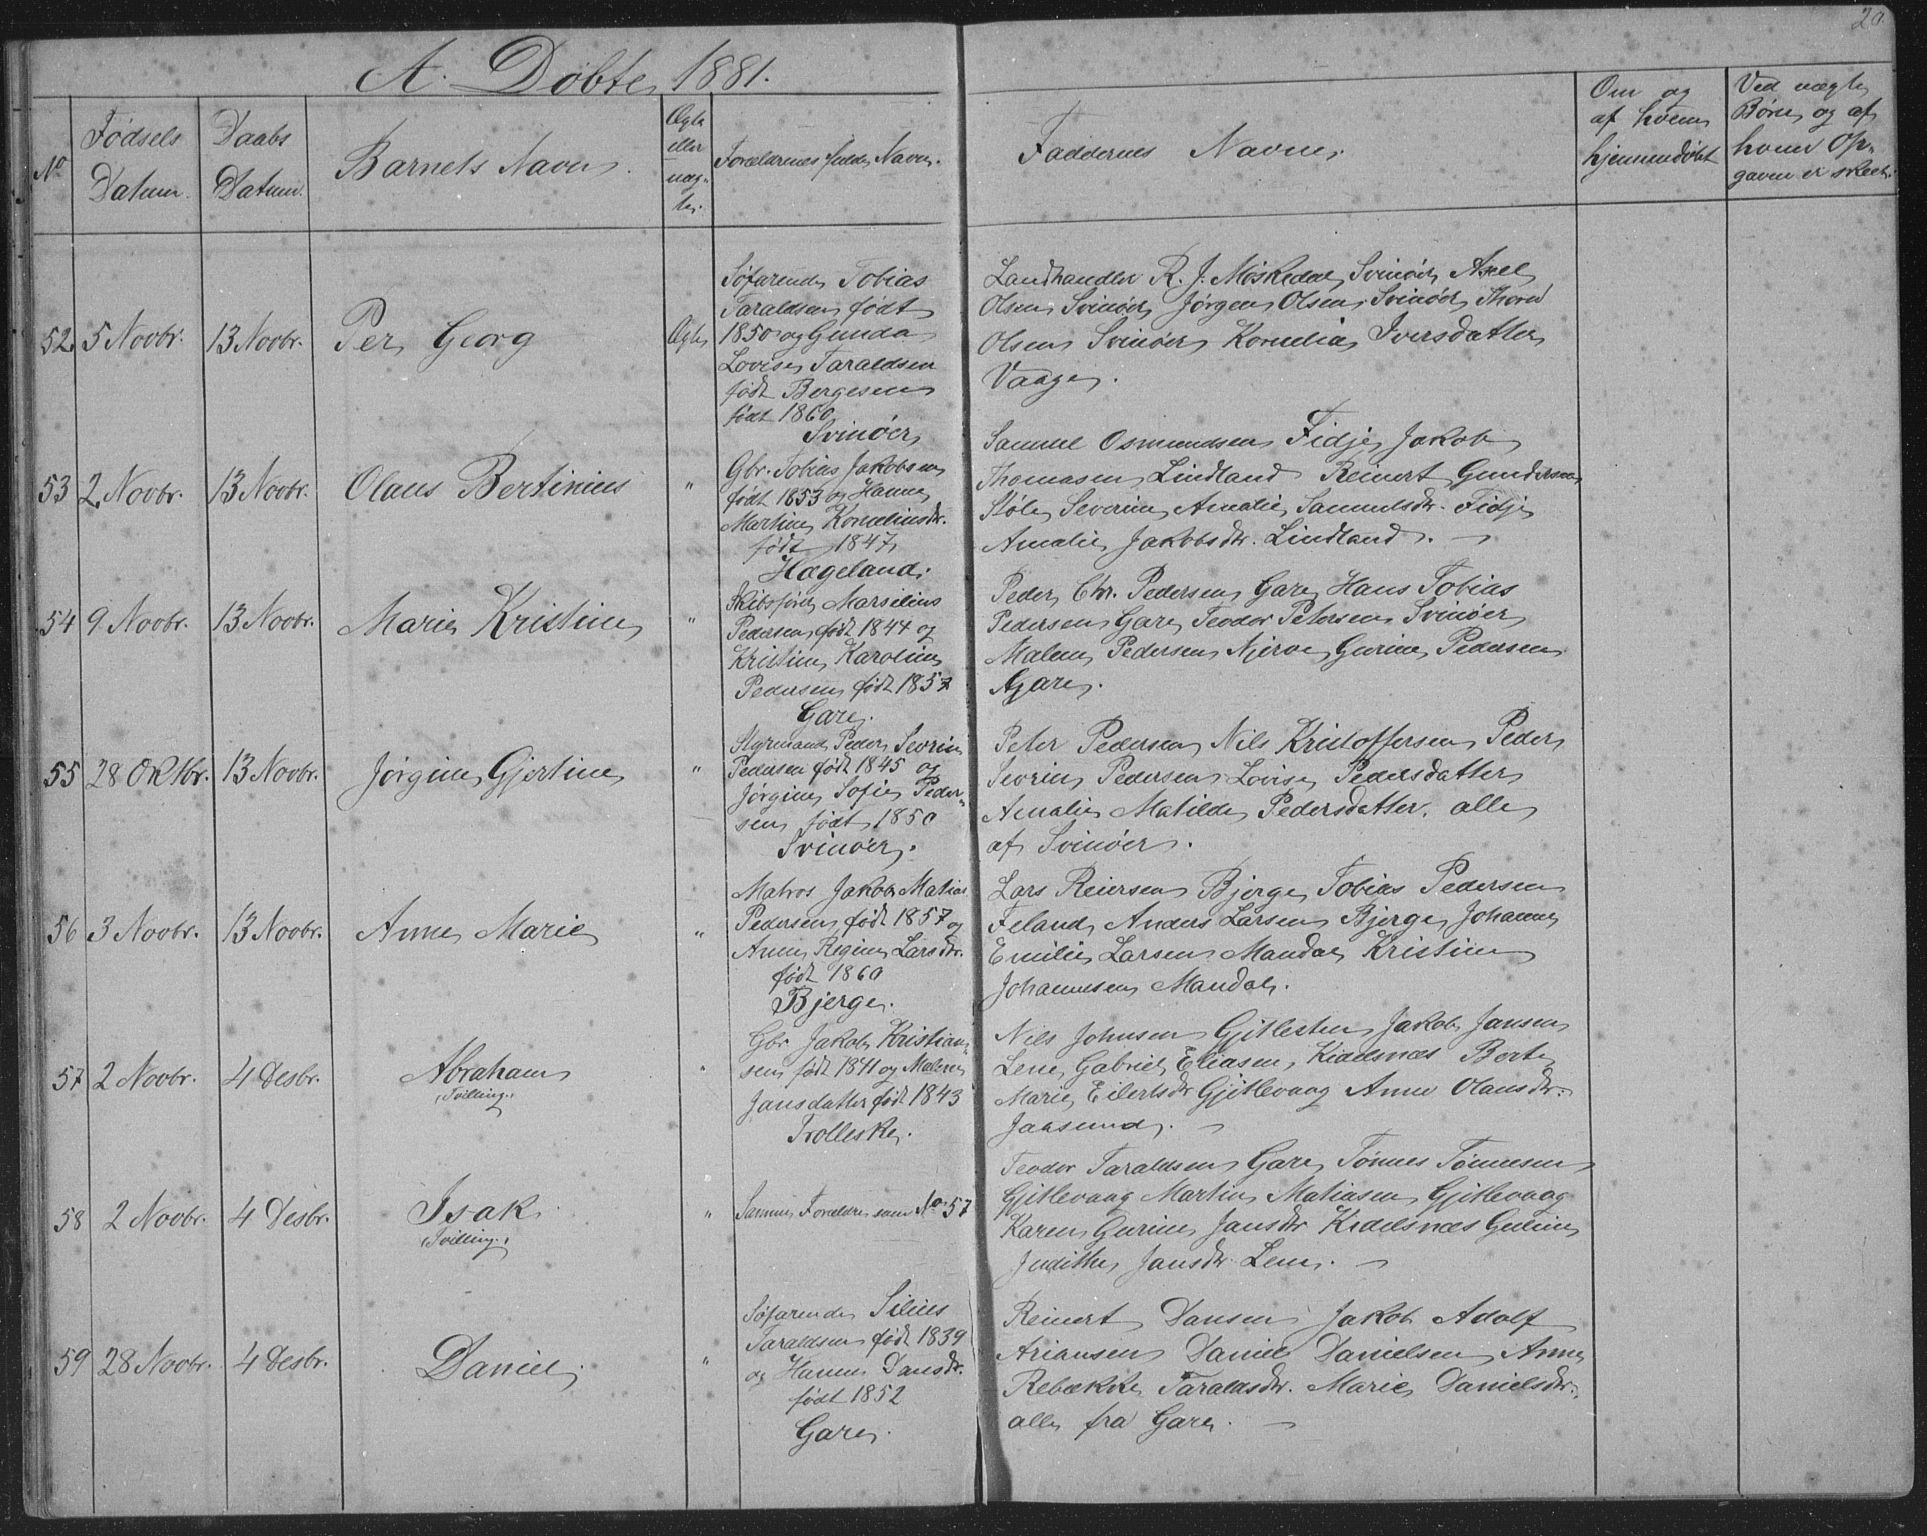 20.
A. Døbte, 1881.
No
Fødsels Datum.
Daabs Datum.
Barnets Navn.
Ægte eller uæg-te.
Forældrenes fulde Navn.
Faddernes Navne.
Om og af hvem hjemmedøbt
Ved uægte Børn, og af hvem Op-gaven er skeet.
52. 5 Novbr. 13 Novbr. Per Georg Ægte
Søfarende Tobias
Taraldsen født
1850 og Gunda
Lovise Taraldsen
født Børgesen
født 1860
Svinøer
Landhandler R. J. Moskedal, Svinøer, Axel
Olsen Svinøer, Jørgen Olsen Svinøer, Thorvd
Olsen Svinøer Kornelia Iversdatter
Vaage.
53 2 Novbr. 13 Novbr. Olaus Bertinius "
Gbr. Tobias Jakobsen
født 1853 og Hanne
Martine Korneliusdtr.
født 1847
Hægeland.
Samuel Osmundsen Fidje, Jakob
Thomasen Lindland Reinert Gundersen
Støle, Severine Amalie Samuelsdtr. Fidje
Amalie Jakobsdtr. Lindland. —
54 9 Novbr. 13 Novbr. Marie Kristine "
Skibsfører Marselius
Pedersen født 1844 og
Kristine Karoline
Pedersen født 1857
Gare.
Peder Chr. Pedersen Gare, Hans Tobias
Pedersen Gare, Teodor Petersen Svinøer
Malene Pedersen Njerve, Gurine Pedersen
Gare.
55 28 Oktbr. 13 Novbr. Jørgine Gjertine "
Styrmand Peder Sevrin
Pedersen født 1845 og
Jørgine Sofie Peder-
sen født 1850
Svinøer.
Peter Pedersen Nils Kristoffersen Peder
Sevrin Pedersen Lovise Pedersdatter
Amalie Matilde Pedersdatter, alle
af Svinøer.
56 3 Novbr. 13 Novbr. Anne Marie "
Matros Jakob Matias
Pedersen født 1857 og
Anne Regine Larsdtr.
født 1860
Bjerge.
Lars Reiersen Bjerge, Tobias Pedersen
Feland, Anders Larsen Bjerge, Johanne
Emilie Larsen Mandal, Kristine
Johannesen Mandal.
57 2 Novbr. 4 Desbr. Abraham "
(Tvilling.)
Gbr Jakob Kristian-
sen født 1841 og Malene
Jansdatter født 1843
Trolleske.
Nils Johnsen Gitlesten, Jakob Jansen
Lene, Gabriel Eliasen, Kidelsnæs Berte
Marie Eilertsdtr Gjitlevaag Anne Olausdtr.
Jaasund. —
58 2 Novbr. 4 Desbr. Isak "
(Tvilling.)
Samme Forældre som No. 57
Teodor Taraldsen Gare, Tønnes Tønnesen
Gjitlevaag Martin Matiasen Gjitlevaag
Karen Gurine Jansdtr Kidelsnæs Guline
Judithe Jansdtr. Lene. —
59 28 Novbr. 4 Desbr. Daniel "
Søfarende Silius
Taraldsen født 1839
og Hanne Dansdtr.
født 1852
Gare.
Reinert Dansen Jakob Adolf
Ariansen Daniel Danielsen Anne
Rebække Taraldsdtr. Marie Danielsdtr.
alle fra Gare. —